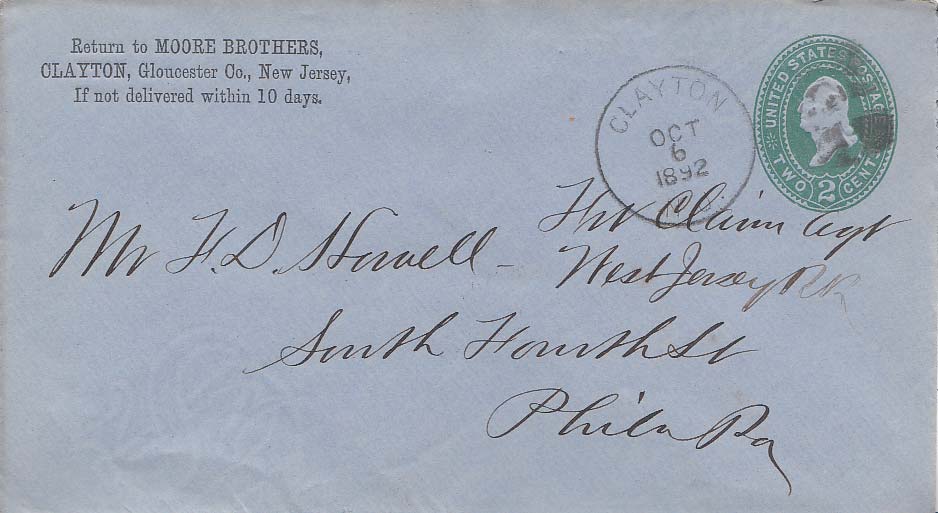 Return to MOORE BROTHERS,
CLAYTON, Gloucester Co., New Jersey,
If not delivered within 10 days.
CLAYTON
OCT
6
1892
UNITED STATES POSTAGE
TWO 2 CENTS
Mr F. D. Howell -
Frt Claim Agt
West Jersey RR
South Fourth St
Phila Pa